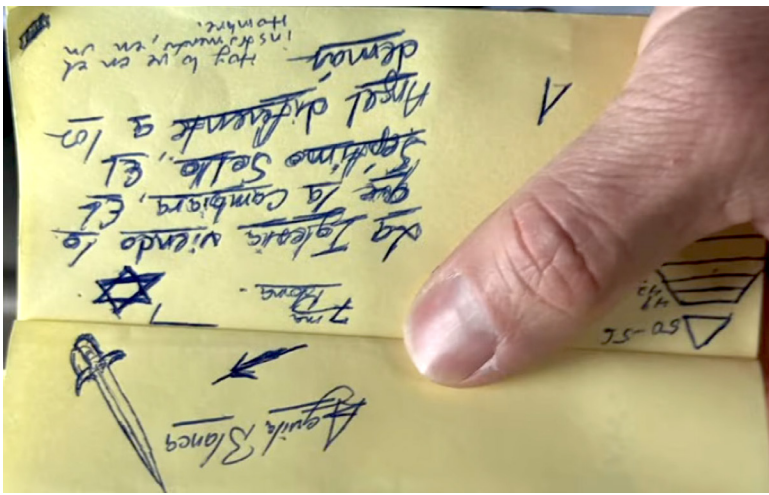 Aguila Blanca
50-56
49
7ma Hora.
La Iglesia viendo lo
que la cambiara, El
Séptimo Sello, El
Angel diferente a los
demás
Hoy lo ve en el
instrumento, en un
Hombre.